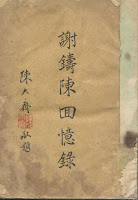 謝鑄陳回憶錄
陳大齊
敬題